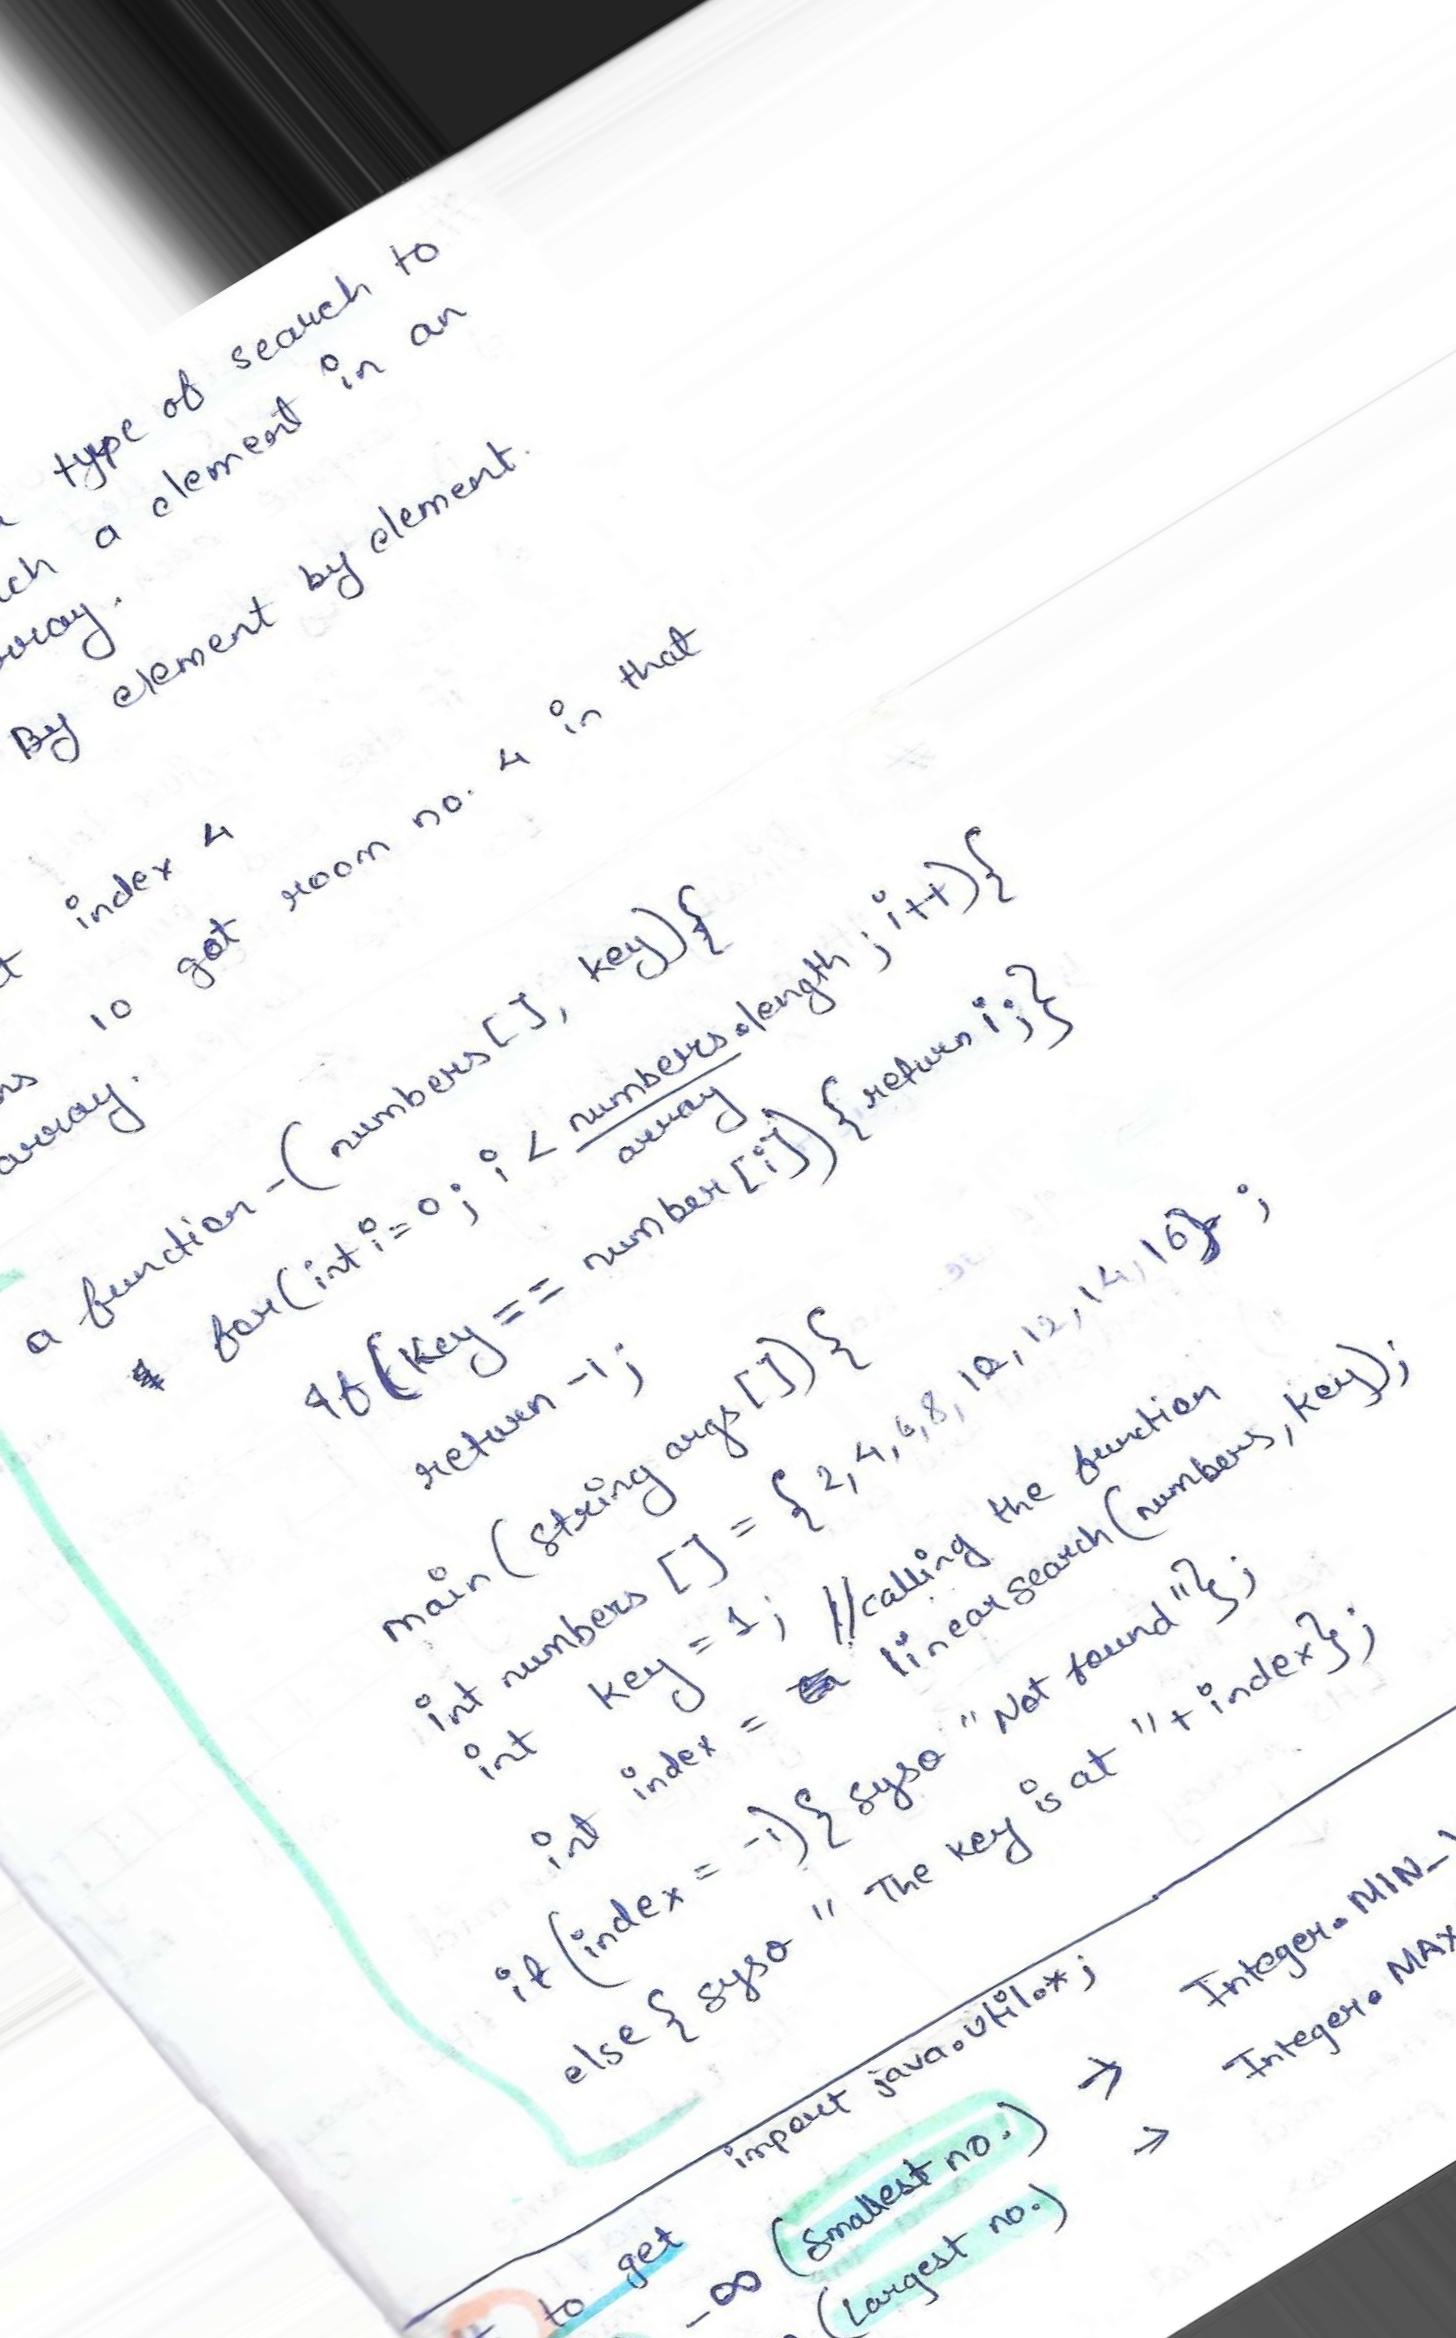 type of search to
a element in an
By element by element.
index 4
10 got room no. 4 in that
array.
a function - (numbers[], key){
for(int i=0; i < numbers.length; i++){
array
if(key == number[i]){return i;}
return -1;
main(string args[]){
int numbers [] = {2,4,6,8,10,12,14,16};
int key = 1; //calling the function
int index = linearsearch(numbers, key);
if(index = -1){syso "Not found"};
else{syso "The key is at "+index};
import java.util.*;
to get -∞ (smallest no.) → Integer.MIN_
(Largest no.) → Integer.MAX